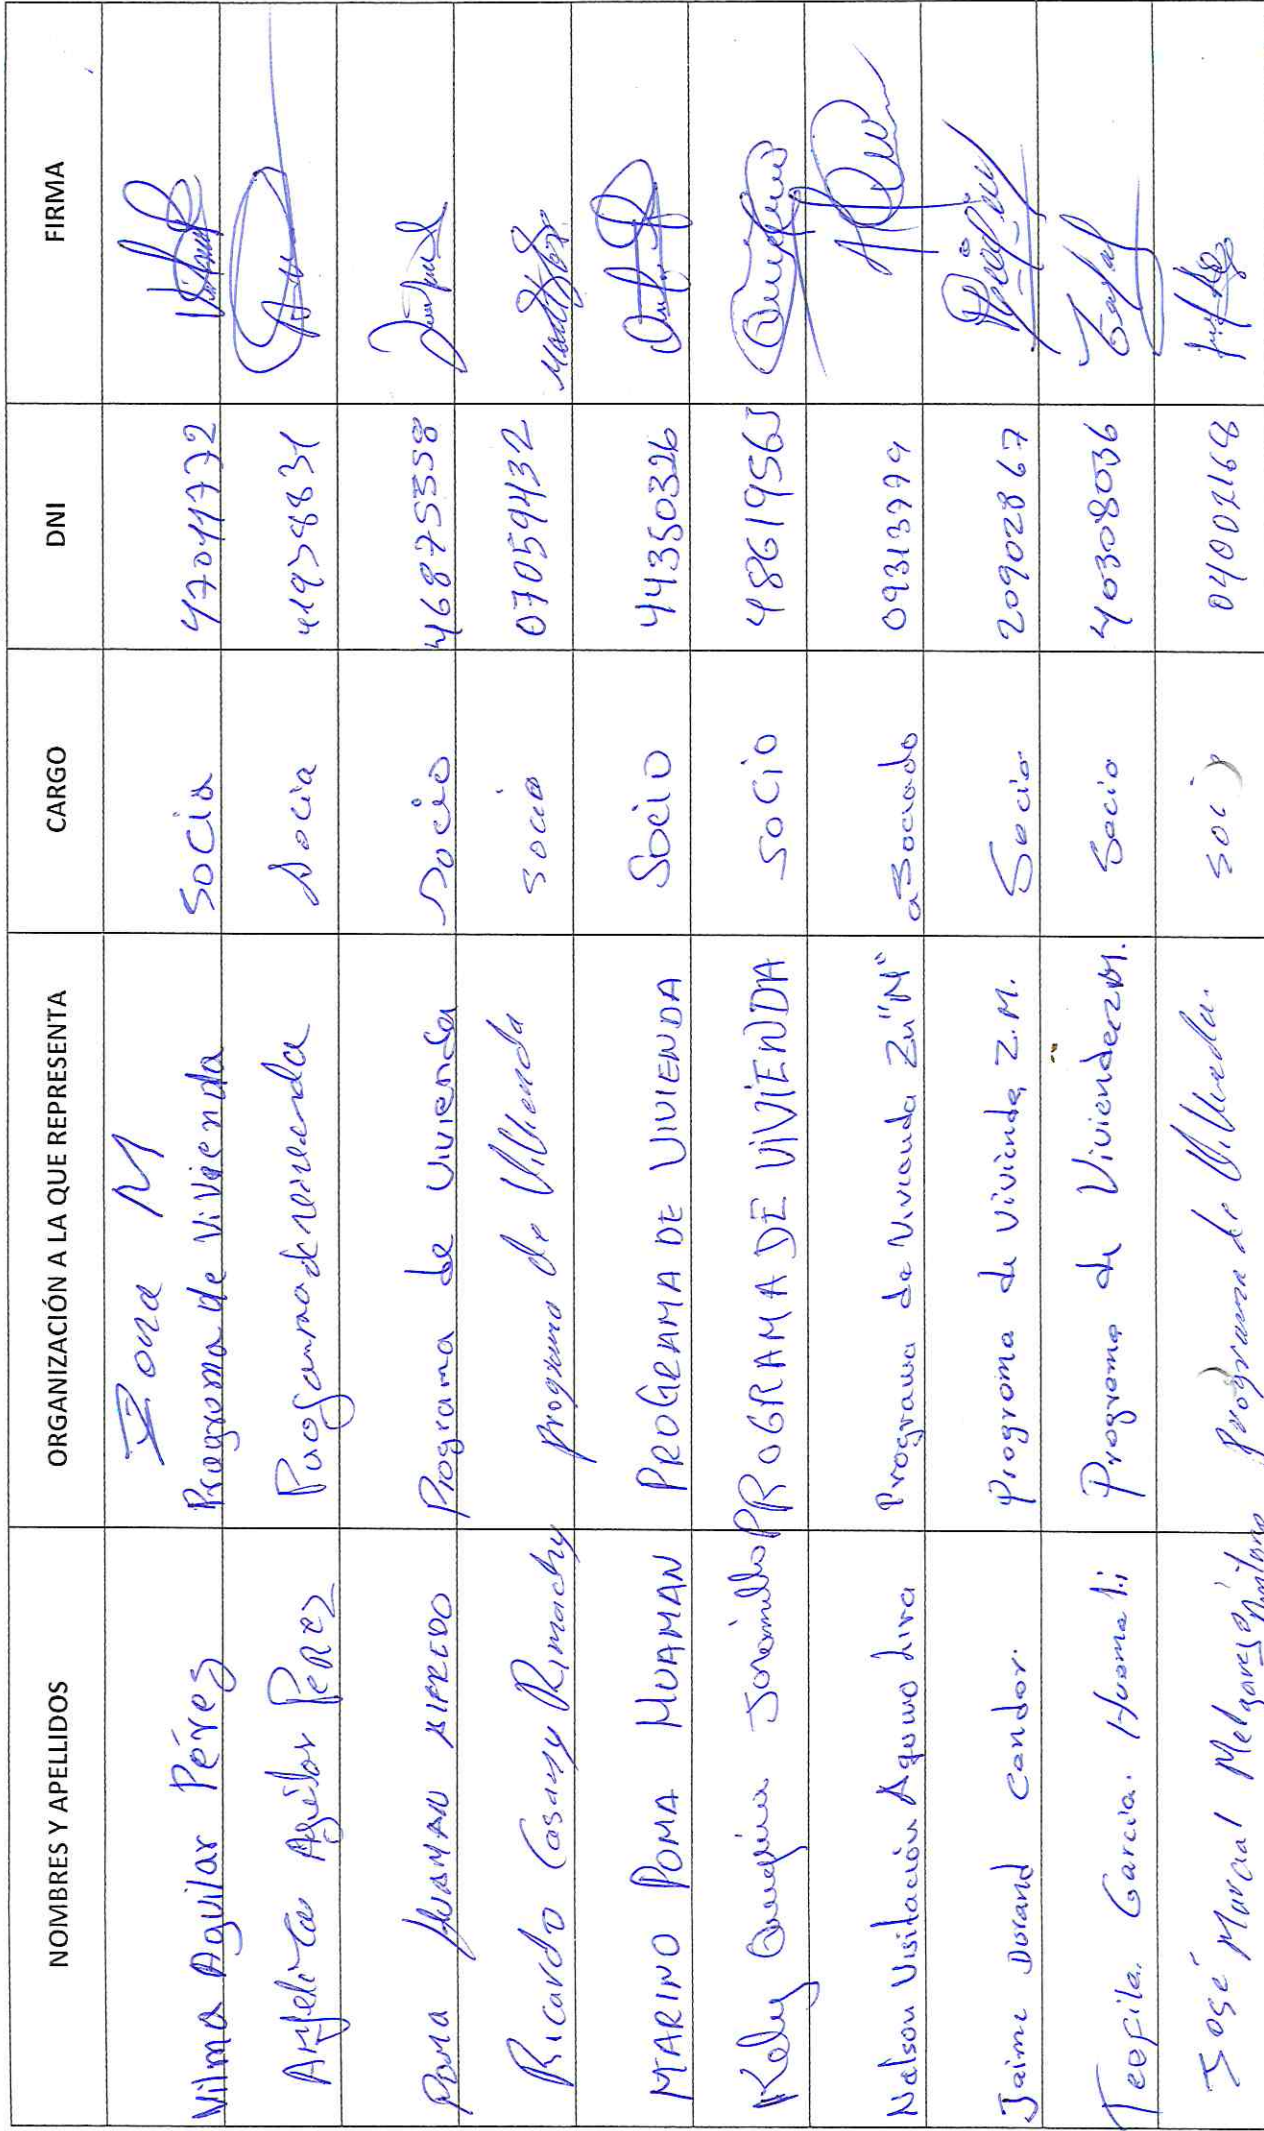 NOMBRES Y APELLIDOS ORGANIZACIÓN A LA QUE REPRESENTA CARGO DNI FIRMA
Zona M
Vilma Aguilar Pérez Programa de Vivienda Socia 47041772
Angelica Aguilar Perez Programa de vivienda Socia 41938831
Poma HUAMAN AlFREDO Programa de Vivienda Socio 46875358
Ricardo Casasy Rimachy programa de Villienda socio 07059432
MARINO POMA HUAMAN PROGRAMA DE VIVIENDA Socio 44350326
Kely Joramillo PROGRAMA DE ViViENDA SOCIO 48619565
Nelson Visitación Aguero Lira Programa de Vivienda Zn "M" asociado 09313979
Jaime Dorand Condor. programa de vivienda Z.M. Socio 20902867
Teofila. Garcia. Huamali Programa de Vivienda Z.M. Socio 40308036
José Marcial Melgarejo Programa de Villienda. soci 04002168